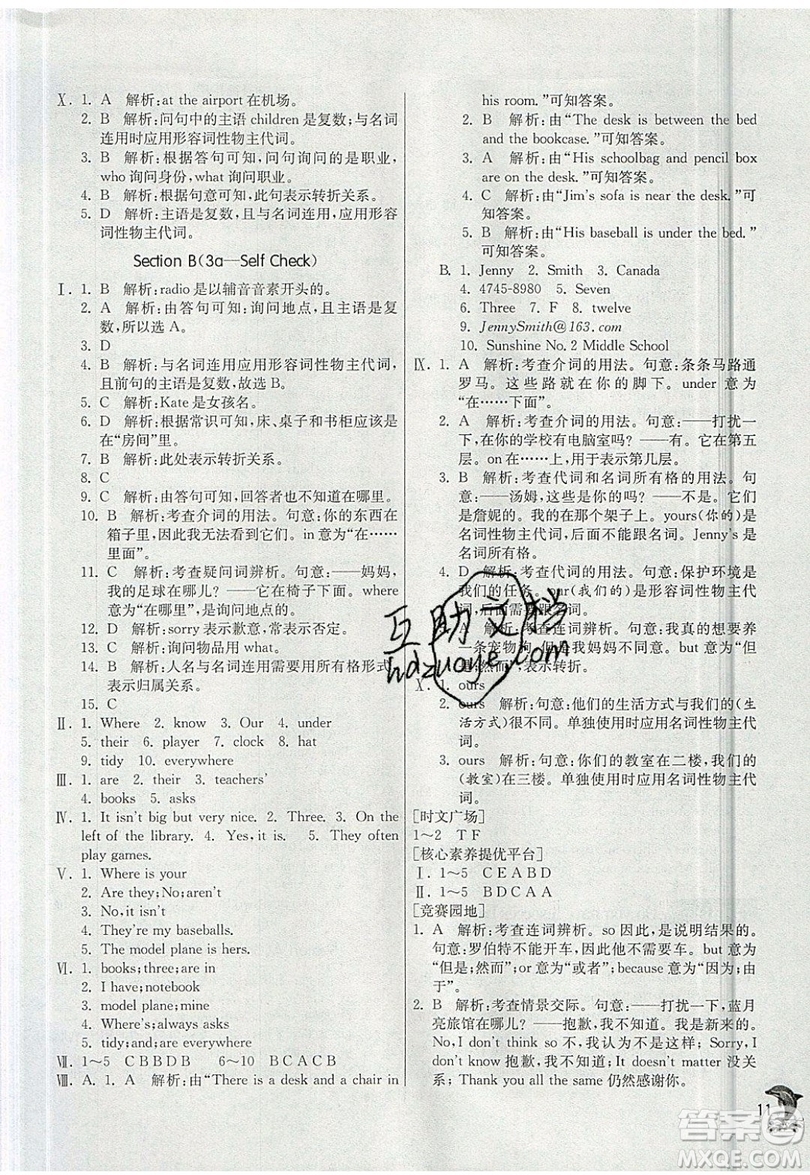 Ⅹ. 1. A 解析:at the airport 在机场。
2. B 解析:问句中的主语 children 是复数;与名词
连用时应用形容词性物主代词。
3. B 解析:根据答句可知,问句询问的是职业,
who 询问身份,what 询问职业。
4. B 解析:根据句意可知,此句表示转折关系。
5. D 解析:主语是复数,且与名词连用,应用形容
词性物主代词。
Section B(3a—Self Check)
Ⅰ. 1. B 解析:radio 是以辅音音素开头的。
2. A 解析:由答句可知:询问地点,且主语是复
数,所以选 A。
3. D
4. B 解析:与名词连用应用形容词性物主代词,
且前句的主语是复数,故选 B。
5. C 解析:Kate 是女孩名。
6. D 解析:根据常识可知,床、桌子和书柜应该是
在“房间”里。
7. B 解析:此处表示转折关系。
8. C
9. C 解析:由答句可知,回答者也不知道在哪里。
10. B 解析:考查介词的用法。句意:你的东西在
箱子里,因此我无法看到它们。in 意为“在……
里面”。
11. C 解析:考查疑问词辨析。句意:——妈妈,
我的足球在哪儿?——它在椅子下面。where
意为“在哪里”,是询问地点的。
12. D 解析:sorry 表示歉意,常表示否定。
13. C 解析:询问物品用 what。
14. B 解析:人名与名词连用需要用所有格形式,
表示归属关系。
15. C
Ⅱ. 1. Where 2. know 3. Our 4. under
5. their 6. player 7. clock 8. hat
9. tidy 10. everywhere
Ⅲ. 1. are 2. their 3. teachers'
4. books 5. asks
Ⅳ. 1. It isn't big but very nice. 2. Three. 3. On the
left of the library. 4. Yes,it is. 5. They often
play games.
Ⅴ. 1. Where is your
2. Are they;No;aren't
3. No,it isn't
4. They're my baseballs.
5. The model plane is hers.
Ⅵ. 1. books;three;are in
2. I have;notebook
3. model plane;mine
4. Where's;always asks
5. tidy;and;are everywhere
Ⅶ. 1~5 CBBDB 6~10 BCACB
Ⅷ. A. 1. A 解析:由“There is a desk and a chair in
his room.”可知答案。
2. B 解析:由“The desk is between the bed
and the bookcase.”可知答案。
3. A 解析:由“His schoolbag and pencil box
are on the desk.”可知答案。
4. C 解析:由“Jim's sofa is near the desk.”可
知答案。
5. B 解析:由“His baseball is under the bed.”
可知答案。
B. 1. Jenny 2. Smith 3. Canada
4. 4745-8980 5. Seven
6. Three 7. F 8. twelve
9. JennySmith@163.com
10. Sunshine No. 2 Middle School
Ⅸ. 1. A 解析:考查介词的用法。句意:条条马路通
罗马。这些路就在你的脚下。under 意为
“在……下面”。
2. A 解析:考查介词的用法。句意:——打扰一
下,在你的学校有电脑室吗?——有。它在第五
层。on 在……上,用于表示第几层。
3. B 解析:考查代词和名词所有格的用法。句
意:——汤姆,这些是你的吗?——不是。它们
是詹妮的。我的在那个架子上。yours(你的)是
名词性物主代词,后面不能跟名词。Jenny's 是
名词所有格。
4. D 解析:考查代词的用法。句意:保护环境是
我们的任务。our(我们的)是形容词性物主代
词,后面需要跟名词。
5. A 解析:考查连词辨析。句意:我真的想要养
一条宠物狗,但是我妈妈不同意。but 意为“但
是;然而”,表示转折。
Ⅹ. 1. ours
2. ours 解析:句意:他们的生活方式与我们的(生
活方式)很不同。单独使用时应用名词性物主代词。
3. ours 解析:句意:你们的教室在二楼,我们的
(教室)在三楼。单独使用时应用名词性物主代
词。
[时文广场]
1~2 T F
[核心素养提优平台]
Ⅰ. 1~5 CEABD
Ⅱ. 1~5 BDCAA
[竞赛园地]
1. A 解析:考查连词辨析。so 因此,是说明结果的。
句意:罗伯特不能开车,因为他太年轻了。but 意为
“但是;然而”;or 意为“或者”;because 意为“因为;由
于”。
2. B 解析:考查情景交际。句意:——打扰一下,蓝月
亮旅馆在哪儿?——抱歉,我不知道。我是新来的。
No,I don't think so 不,我认为不是这样;Sorry,I
don't know 抱歉,我不知道;It doesn't matter 没关
系;Thank you all the same 仍然感谢你。
11
互助文档
hdzuoye.com
答案
MXQE.COM